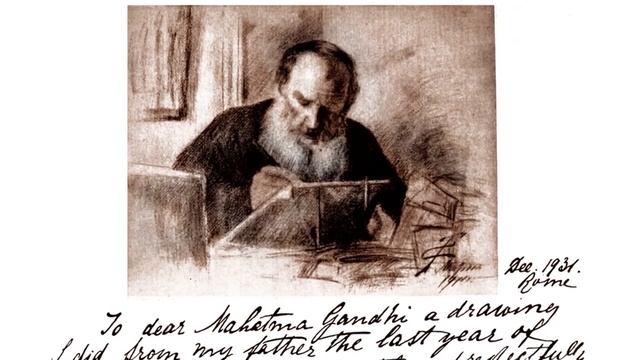 Dec. 1931.
Rome
To dear Mahatma Gandhi a drawing
I did from my father the last year of